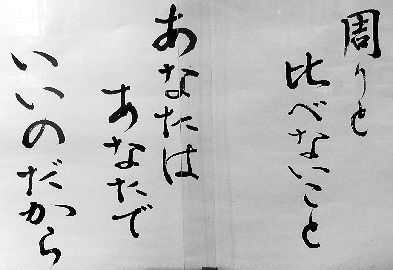 周りと
比べないこと
あなたは
あなたで
いいのだから